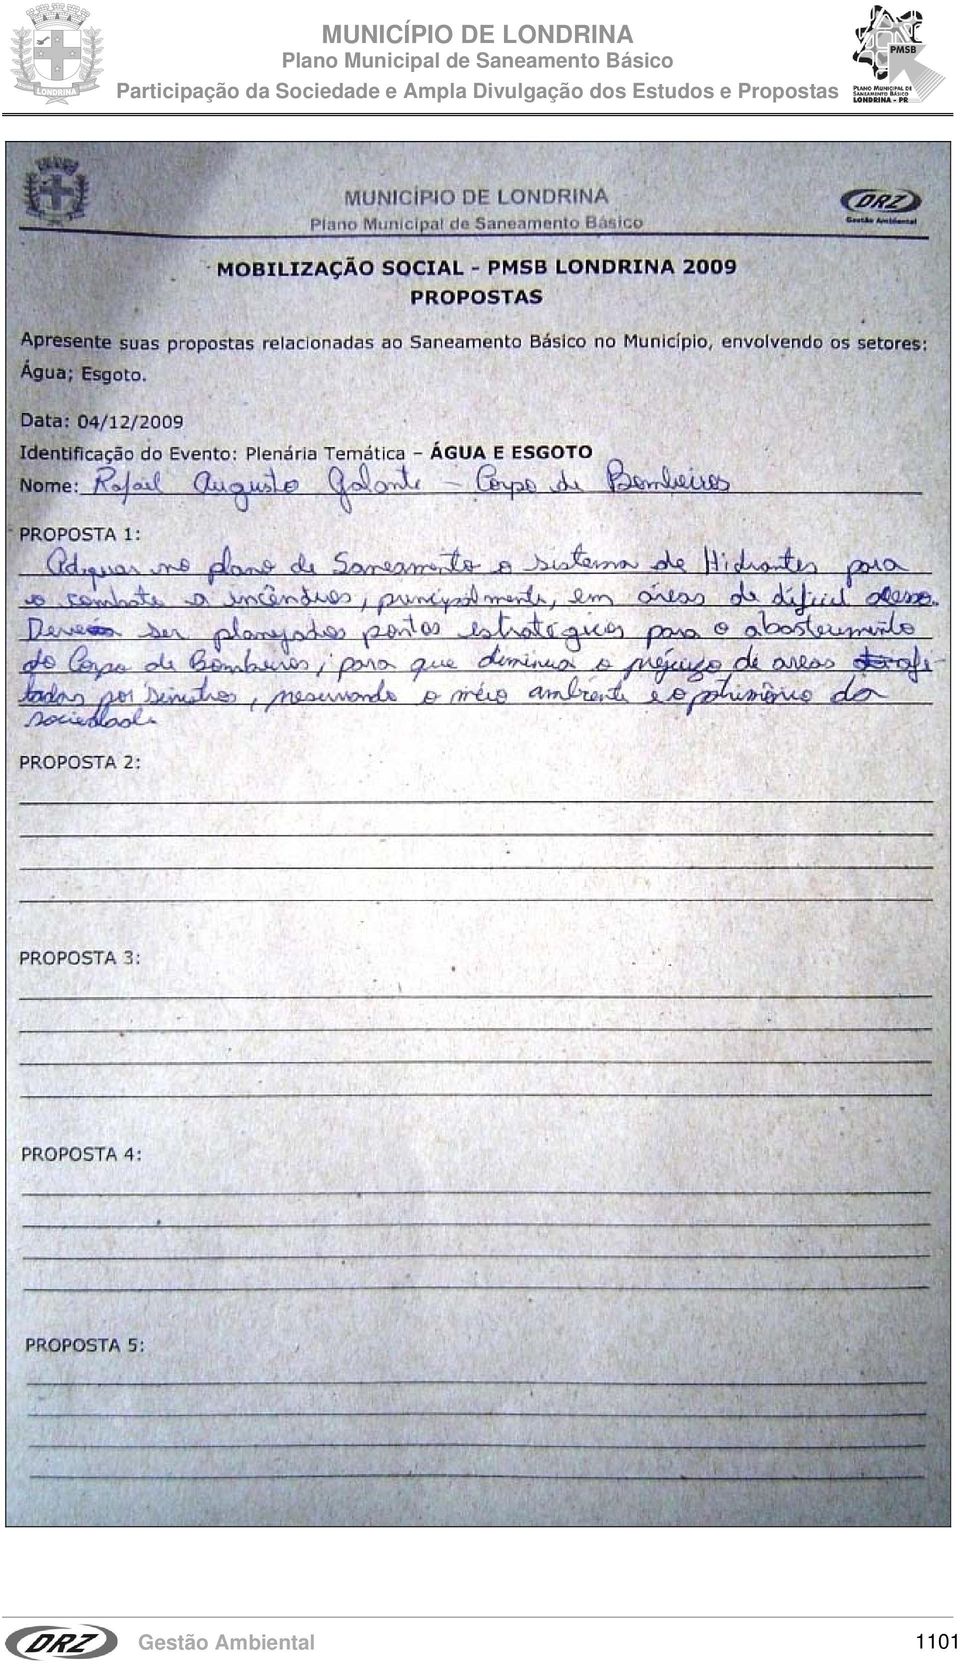 MUNICÍPIO DE LONDRINA
Plano Municipal de Saneamento Básico
Participação da Sociedade e Ampla Divulgação dos Estudos e Propostas
LONDRINA
PMSB
PLANO MUNICIPAL DE
SANEAMENTO BÁSICO
LONDRINA - PR
MUNICÍPIO DE LONDRINA
Plano Municipal de Saneamento Básico
DRZ
Gestão Ambiental
MOBILIZAÇÃO SOCIAL - PMSB LONDRINA 2009
PROPOSTAS
Apresente suas propostas relacionadas ao Saneamento Básico no Município, envolvendo os setores:
Água; Esgoto.
Data: 04/12/2009
Identificação do Evento: Plenária Temática – ÁGUA E ESGOTO
Nome: Rafael Augusto Galante – Corpo de Bombeiros
PROPOSTA 1:
Adequar no plano de Saneamento o sistema de Hidrantes para
o combate a incêndios, principalmente, em áreas de difícil acesso.
Deverão ser planejados pontos estratégicos para o abastecimento
do Corpo de Bombeiros, para que diminua o prejuízo de areas afe-
tadas por sinistros, preservando o meio ambiente e o patrimônio da
sociedade.
PROPOSTA 2:
PROPOSTA 3:
PROPOSTA 4:
PROPOSTA 5:
DRZ
Gestão Ambiental
1101